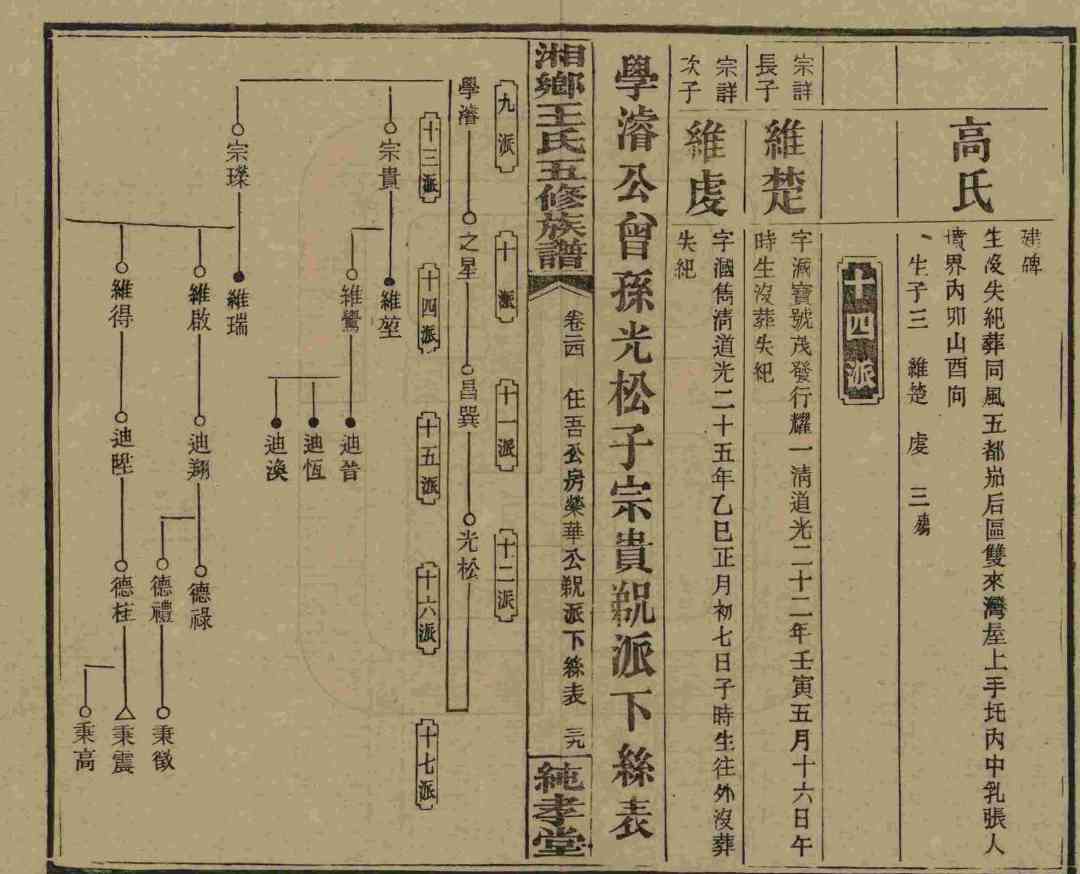 高氏
建碑
生歿失紀葬同風五都茄后區雙來灣屋上手坵內中乳張人
墳界內卯山酉向
生子三　維楚　虔　三殤
十四派
宗詳長子
維楚
字派寶號茂發行耀一清道光二十二年壬寅五月十六日午
時生沒葬失紀
宗詳次子
維虔
字國雋清道光二十五年乙巳正月初七日子時生往外沒葬
失紀
學濬公曾孫光松子宗貴䂓派下絲表
湘鄉王氏五修族譜
卷二四
任吾公房榮華公䂓派下絲表
三九
純孝堂
九派
十派
十一派
十二派
學濬
之星
昌巽
光松
十三派
十四派
十五派
十六派
十七派
宗貴
維堃
維鸞
迪普
迪恆
迪渙
宗璨
維瑞
維啟
迪翔
德祿
德禮
秉徵
維得
迪陞
德柱
秉震
秉高